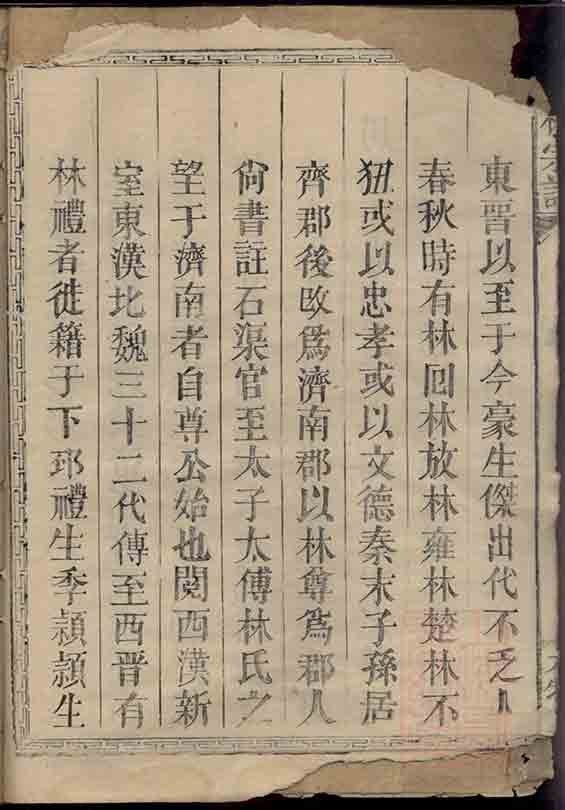 宗譜
東晉以至于今豪生傑出代不乏人
春秋時有林回林放林雍林楚林不
狃或以忠孝或以文德秦末子孫居
齊郡後改爲濟南郡以林尊爲郡人
尙書註石渠官至太子太傅林氏之
望于濟南者自尊公始也閱西漢新
室東漢北魏三十二代傳至西晉有
林禮者徙籍于下邳禮生季頴頴生